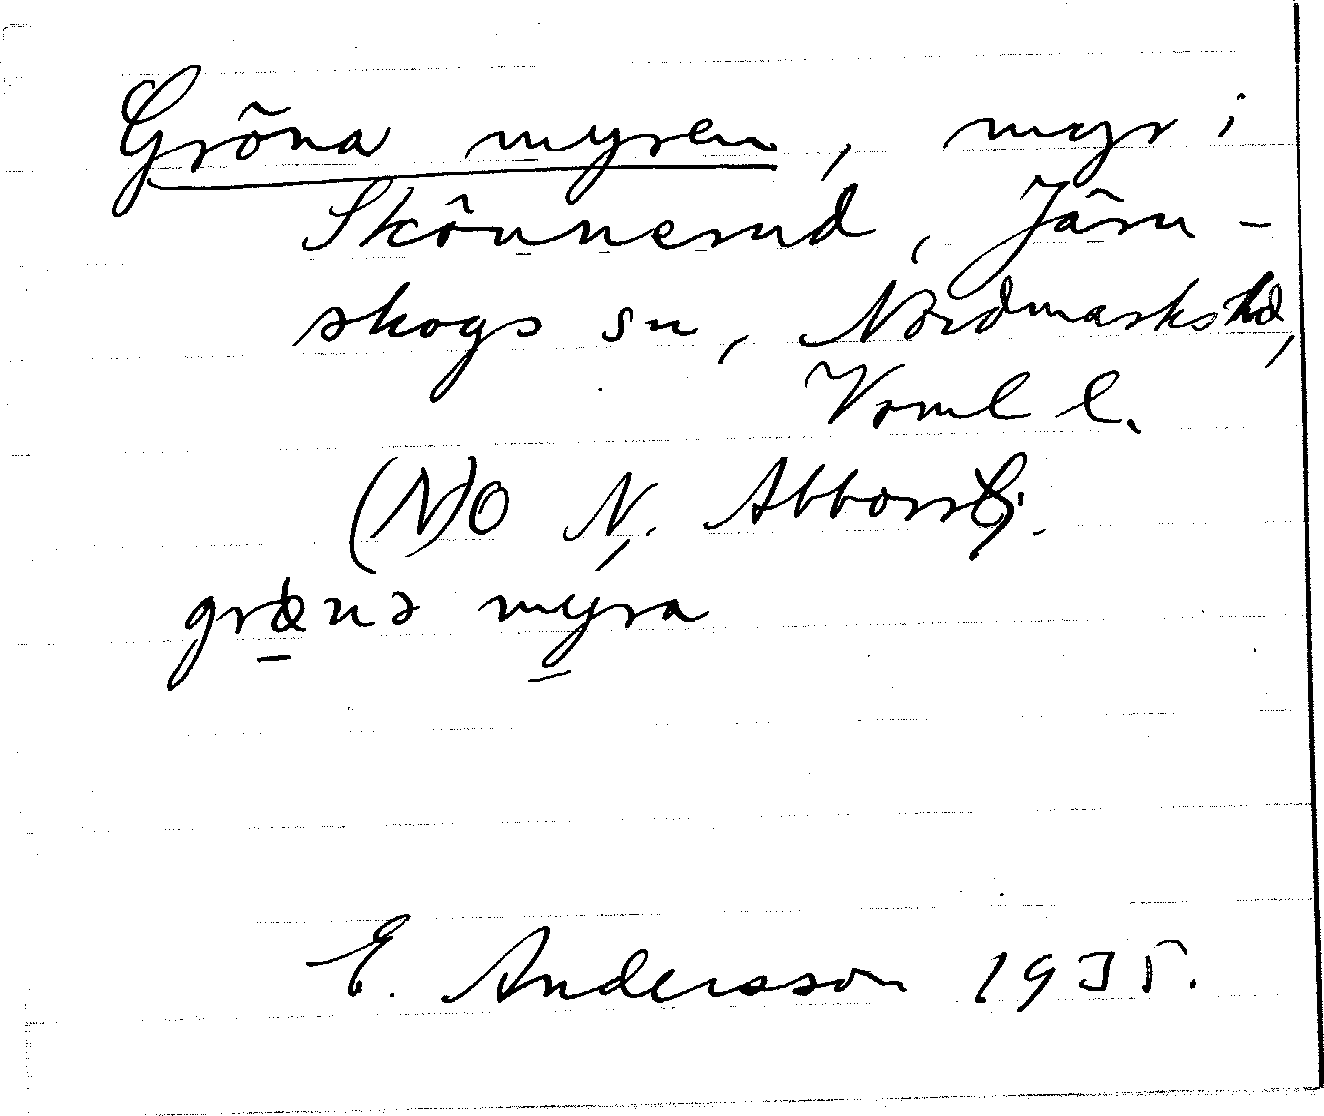 Gröna myren, myr i
Skönnerud, Järn-
skogs sn, Nordmarks hd,
Vrml l.
(N)O N. Abborrtj.
grønə myra
E. Andersson 1935.